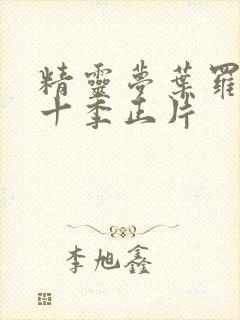 精靈夢葉羅
十季正片
李旭鑫